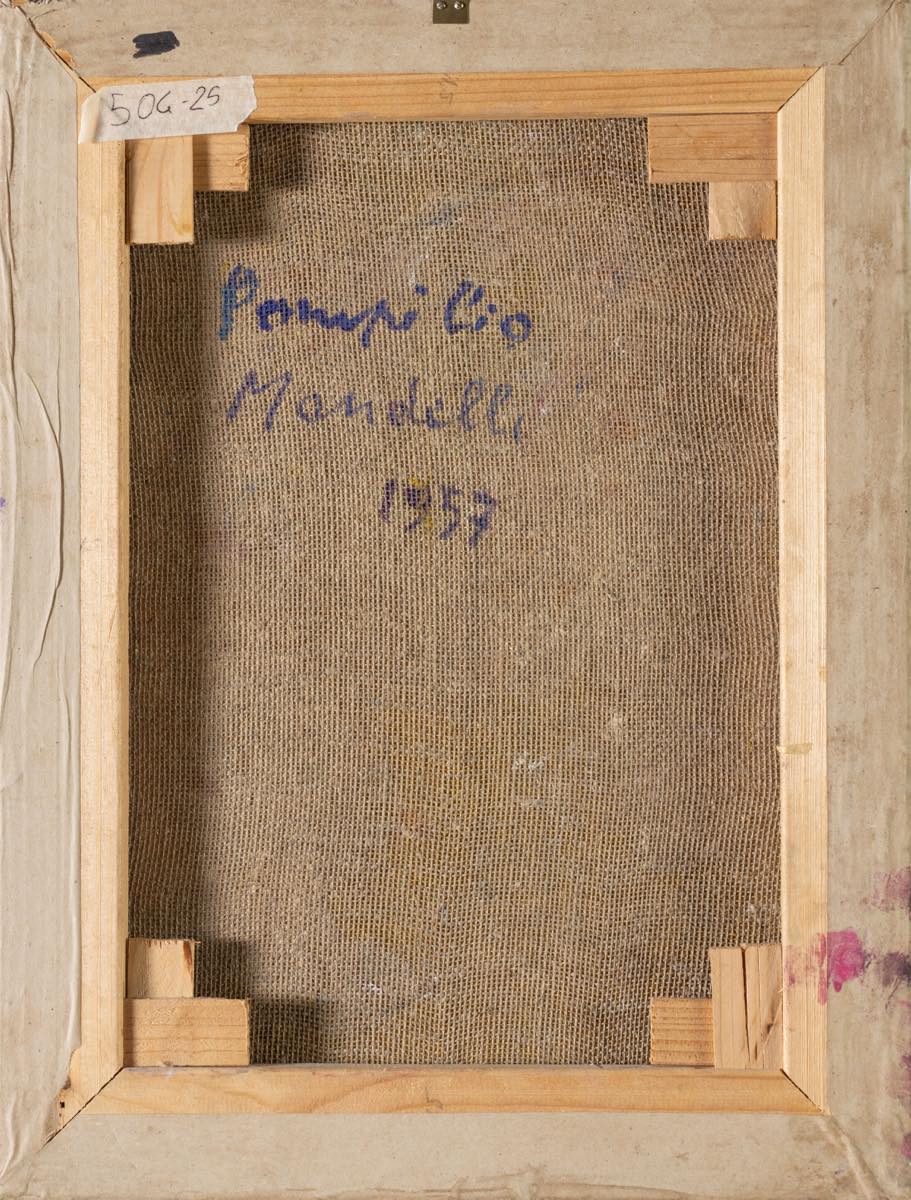 506-25
Pompilio
Mandelli
1957